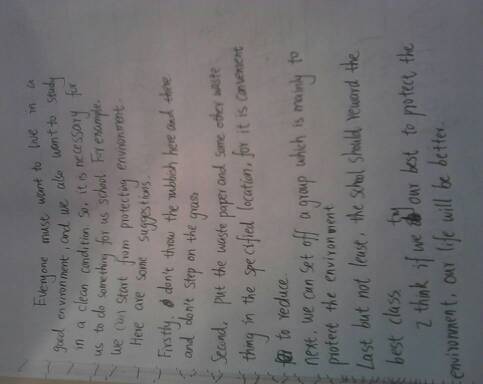 Everyone muse want to live in a
good environment, and we also want to study
in a clean condition. So, it is necessary for
us to do something for us school. For example.
we can start from protecting environment.
Here are some suggestions.
Firstly, don't throw the rubbish here and there
and don't step on the grass
Second, put the waste paper and some other waste
thing in the specified location, for it is convenient
to reduce.
next, we can set off a group which is mainly to
protect the environment
Last but not lease, the schol should reward the
best class
I think if we try our best to protect the
environment, our life will be better.